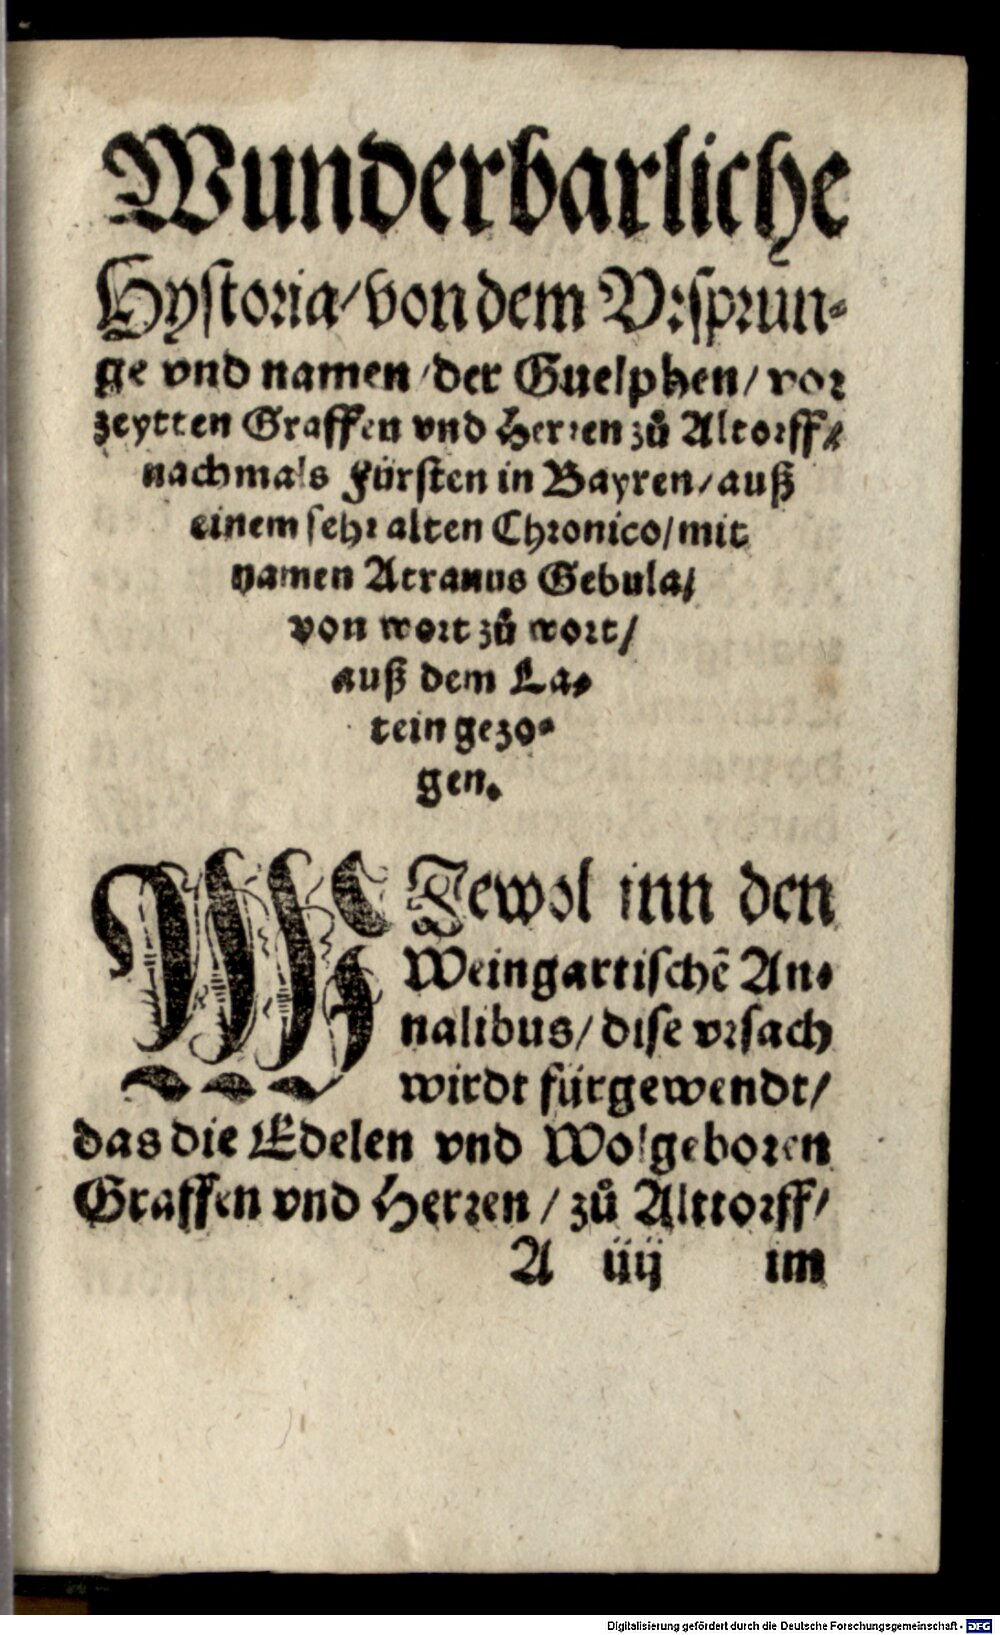 Wunderbarliche
Hystoria/von dem Vrsprun-
ge vnd namen/der Guelphen/vor
zeytten Graffen vnd Herren zů Altorff/
nachmals Fürsten in Bayren/auß
einem sehr alten Chronico/mit
namen Atranus Gebula/
von wort zů wort/
auß dem La-
tein gezo-
gen.
WIewol inn den
Weingartischē An-
nalibus/dise vrsach
wirdt fürgewendt/
das die Edelen vnd Wolgeboren
Graffen vnd Herren/zů Alttorff/
A iiij im
Digitalisierung gefördert durch die Deutsche Forschungsgemeinschaft - DFG